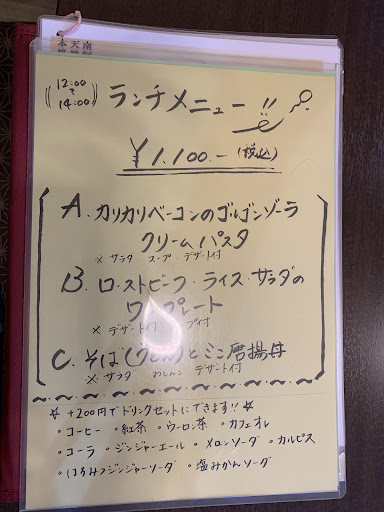 12:00
〜
14:00
ランチメニュー!!
¥1,100.-(税込)
A. カリカリベーコンのゴルゴンゾーラ
クリームパスタ
× サラダ スープ デザート付
B. ローストビーフ・ライス・サラダの
ワンプレート
× デザート付
C. そば(うどん)とミニ唐揚丼
× サラダ デザート付
☆ +200円でドリンクセットにできます!! ☆
・コーヒー ・紅茶 ・ウーロン茶 ・カフェオレ
・コーラ ・ジンジャーエール ・メロンソーダ ・カルピス
・はちみつジンジャーソーダ ・塩みかんソーダ